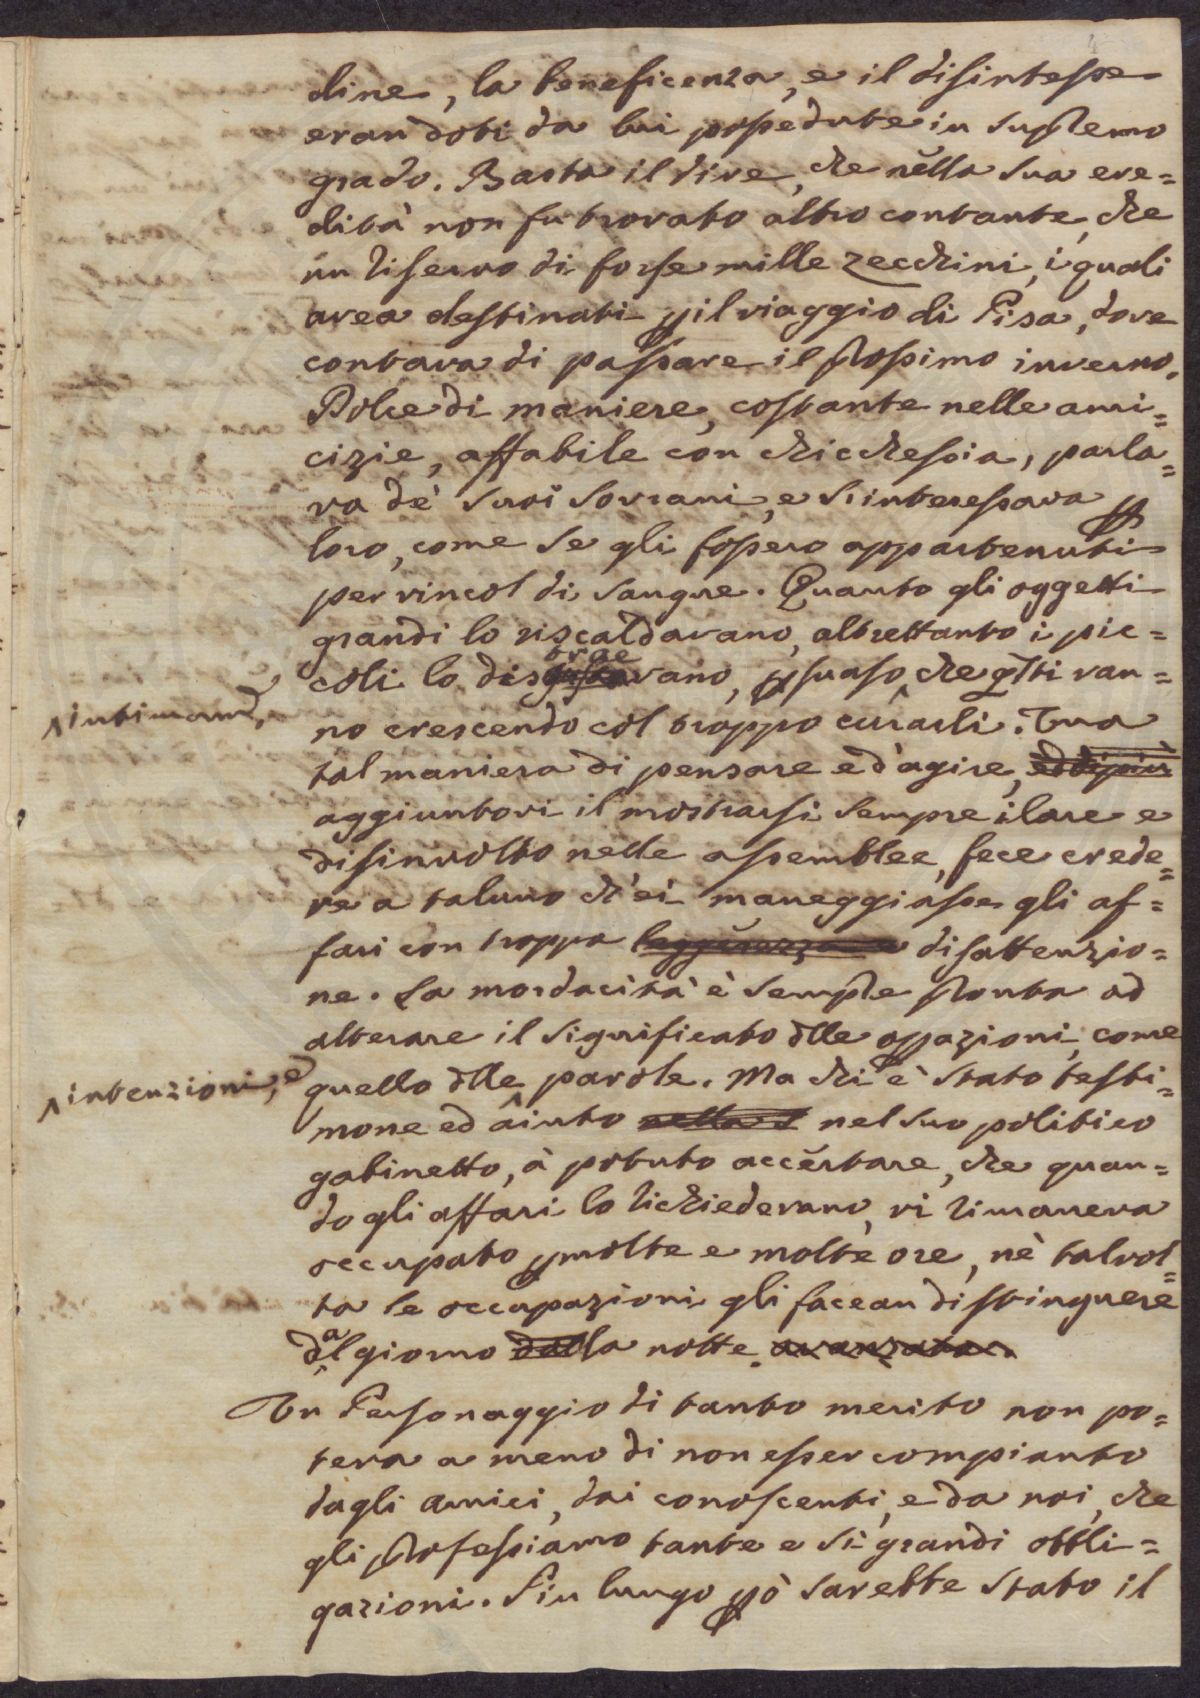 dine, la beneficenza, e il disinteresse
eran doti da lui possedute in supremo
grado. Basta il dire, che nella sua ere=
dità non fu trovato altro contante, che
un riservo di forse mille zecchini, i quali
avea destinati p il viaggio di Pisa, dove
contava di passare il prossimo inverno.
Dolce di maniere, costante nelle ami=
cizie, affabile con chicchessia, parla=
va de' suoi Sovrani, e s'interessava p
loro, come se gli fossero appartenuti
per vincol di sangue. Quanto gli oggetti
grandi lo riscaldavano, altrettanto i pic=
coli lo disvano, psuaso, che qsti van=
intimamte,
no crescendo col troppo curarli. Una
tal maniera di pensare e d'agire, ed di più
aggiuntovi il mostrarsi sempre ilare e
disinvolto nelle assemblee, fece crede=
re a taluno ch'ei maneggiasse gli af=
fari con troppa leggerezza e disattenzio=
ne. La mordacità è sempre pronta ad
alterare il significato dlle opazioni, come
intenzioni, e
quello dlle parole. Ma chi è stato testi=
mone ed aiuto nella s nel suo politico
gabinetto, à potuto accertare, che quan=
do gli affari lo richiedevano, vi rimaneva
occupato p molte e molte ore, nè talvol=
ta le occupazioni gli facean distinguere
dal giorno dalla notte avanzata.
Un Personaggio di tanto merito non po=
teva a meno di non esser compianto
dagli amici, dai conoscenti, e da noi, che
gli professiamo tante e sì grandi obbli=
gazioni. Più lungo pò sarebbe stato il